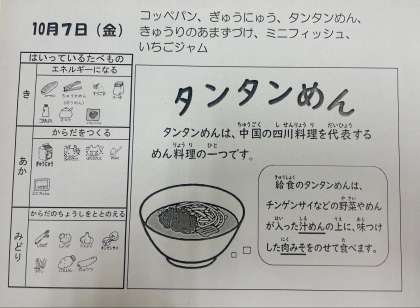 10月7日（金）
コッペパン、ぎゅうにゅう、タンタンめん、
きゅうりのあまずづけ、ミニフィッシュ、
いちごジャム
はいっているたべもの
エネルギーになる
き
からだをつくる
あか
からだのちょうしをととのえる
みどり
タンタンめん
タンタンめんは、中国の四川料理を代表する
めん料理の一つです。
給食のタンタンめんは、
チンゲンサイなどの野菜やめん
が入った汁めんの上に、味つけ
した肉みそをのせて食べます。